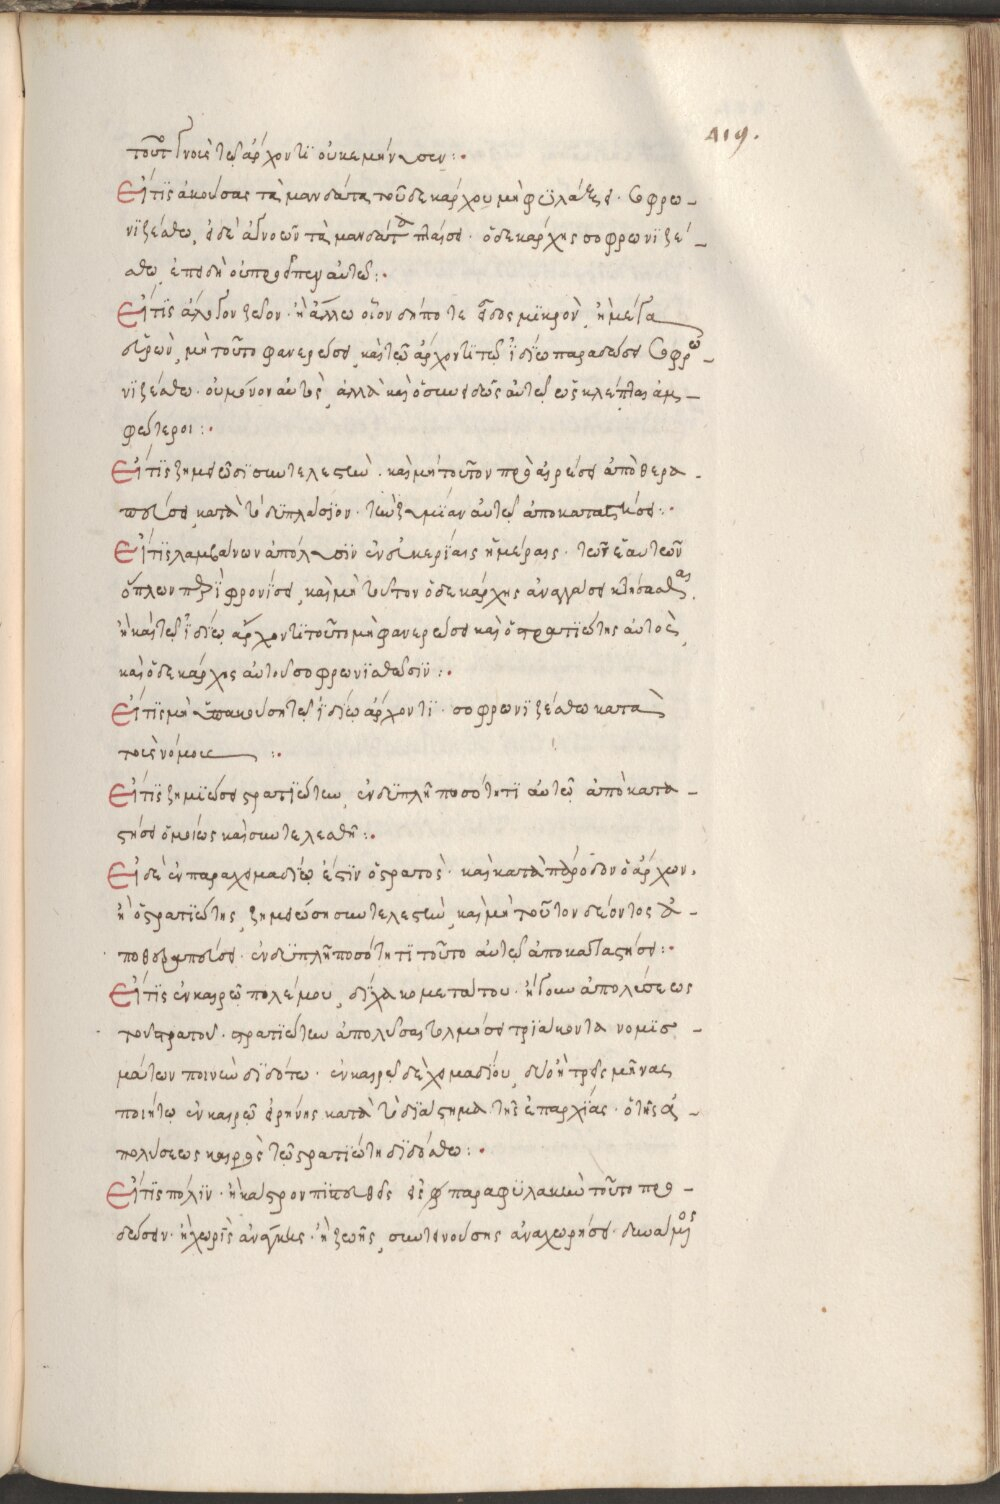 419.
τοῦτο γνοὺς τῷ ἄρχοντι οὐκ ἐμήνυσεν :·
Εἴ τις ἀκούσας τὰ μανδάτα τοῦ δεκάρχου μὴ φυλάξει · σωφρο-
νιζέσθω, εἰ δὲ ἀγνοῶν τὰ μανδάτα πταίσει · ὁ δεκάρχης σοφρωνιζέ-
σθω, ἐπειδὴ οὐ προεῖπεν αὐτῷ :·
Εἴ τις ἄλογον ξένον · ἢ ἄλλω οἷον δήποτε εἶδος μικρὸν, ἢ μέγα
εὑρὼν, μὴ τοῦτο φανερώσει, καὶ τῷ ἄρχοντι τῷ ἰδίῳ παραδώσει σωφρω-
νιζέσθω · οὐ μόνον αὐτὸς, ἀλλὰ καὶ ὁ συνειδὼς αὐτῷ ὡς κλέπται ἀμ-
φώτεροι :·
Εἴ τις ζημειώσι συντελεστὴν · καὶ μὴ τοῦτον προαιρέσει ἀποθερα-
πεύσει, κατὰ τὸ διπλάσιον · τὴν ζημίαν αὐτῷ ἀποκαταστήσει :·
Εἴ τις λαμβάνων ἀπόλυσιν ἐν εὐκερίαις ἡμέραις · τῶν ἑαυτῶν
ὅπλων περιφρονήσει, καὶ μὴ τοῦτον ὁ δεκάρχης ἀναγκάσει κτήσασθαι,
ἢ καὶ τῷ ἰδίῳ ἄρχοντι τοῦτο μὴ φανερώσει καὶ ὁ στρατιώτης αὐτὸς,
καὶ ὁ δεκάρχης αὐτοῦ σοφρωνισθῶσιν :·
Εἴ τις μὴ ὑπακούσῃ τῷ ἰδίῳ ἄρχοντι · σοφρωνιζέσθω κατὰ
τοὺς νόμους :·
Εἴ τις ζημιώσει στρατιώτην, ἐν διπλῇ ποσότητι αὐτῷ ἀποκατα-
στήσει ὁμοίως καὶ συντελεσθῇ :·
Εἰ δὲ ἐν παραχειμασίῳ ἐστὶν ὁ στρατὸς · καὶ κατὰ πάροδον ὁ ἄρχων ·
ἢ ὁ στρατιώτης, ζημειώσῃ συντελεστὴν, καὶ μὴ τοῦτον δεόντος ἀ-
ποθεραπεύσει · ἐν διπλῇ ποσότητι τοῦτο αὐτῷ ἀποκαταστήσει :·
Εἴ τις ἐν καιρῷ πολέμου, δίχα κομετάτου · ἤγουν ἀπολύσεως
τοῦ στρατοῦ · στρατιώτην ἀπολῦσαι τολμήσει τριάκοντα νομισ-
μάτων ποινὴν διδότω · ἐν καιρῷ δὲ χειμαδίου, δύο ἢ τρεῖς μῆνας
ποιήτω ἐν καιρῷ εἰρήνης κατὰ τὸ διάστημα τῆς ἐπαρχίας · ὁ τῆς ἀ-
πολύσεως καιρὸς τῷ στρατιώτῃ διδόσθω :·
Εἴ τις πόλιν · ἢ κάστρον πιστευθεὶς εἰς παραφυλακὴν τοῦτο προ-
δώσειν · ἢ χωρὶς ἀνάγκης · ἢ ζωῆς, συντεινούσης ἀναχωρήσει · δυνάμενος